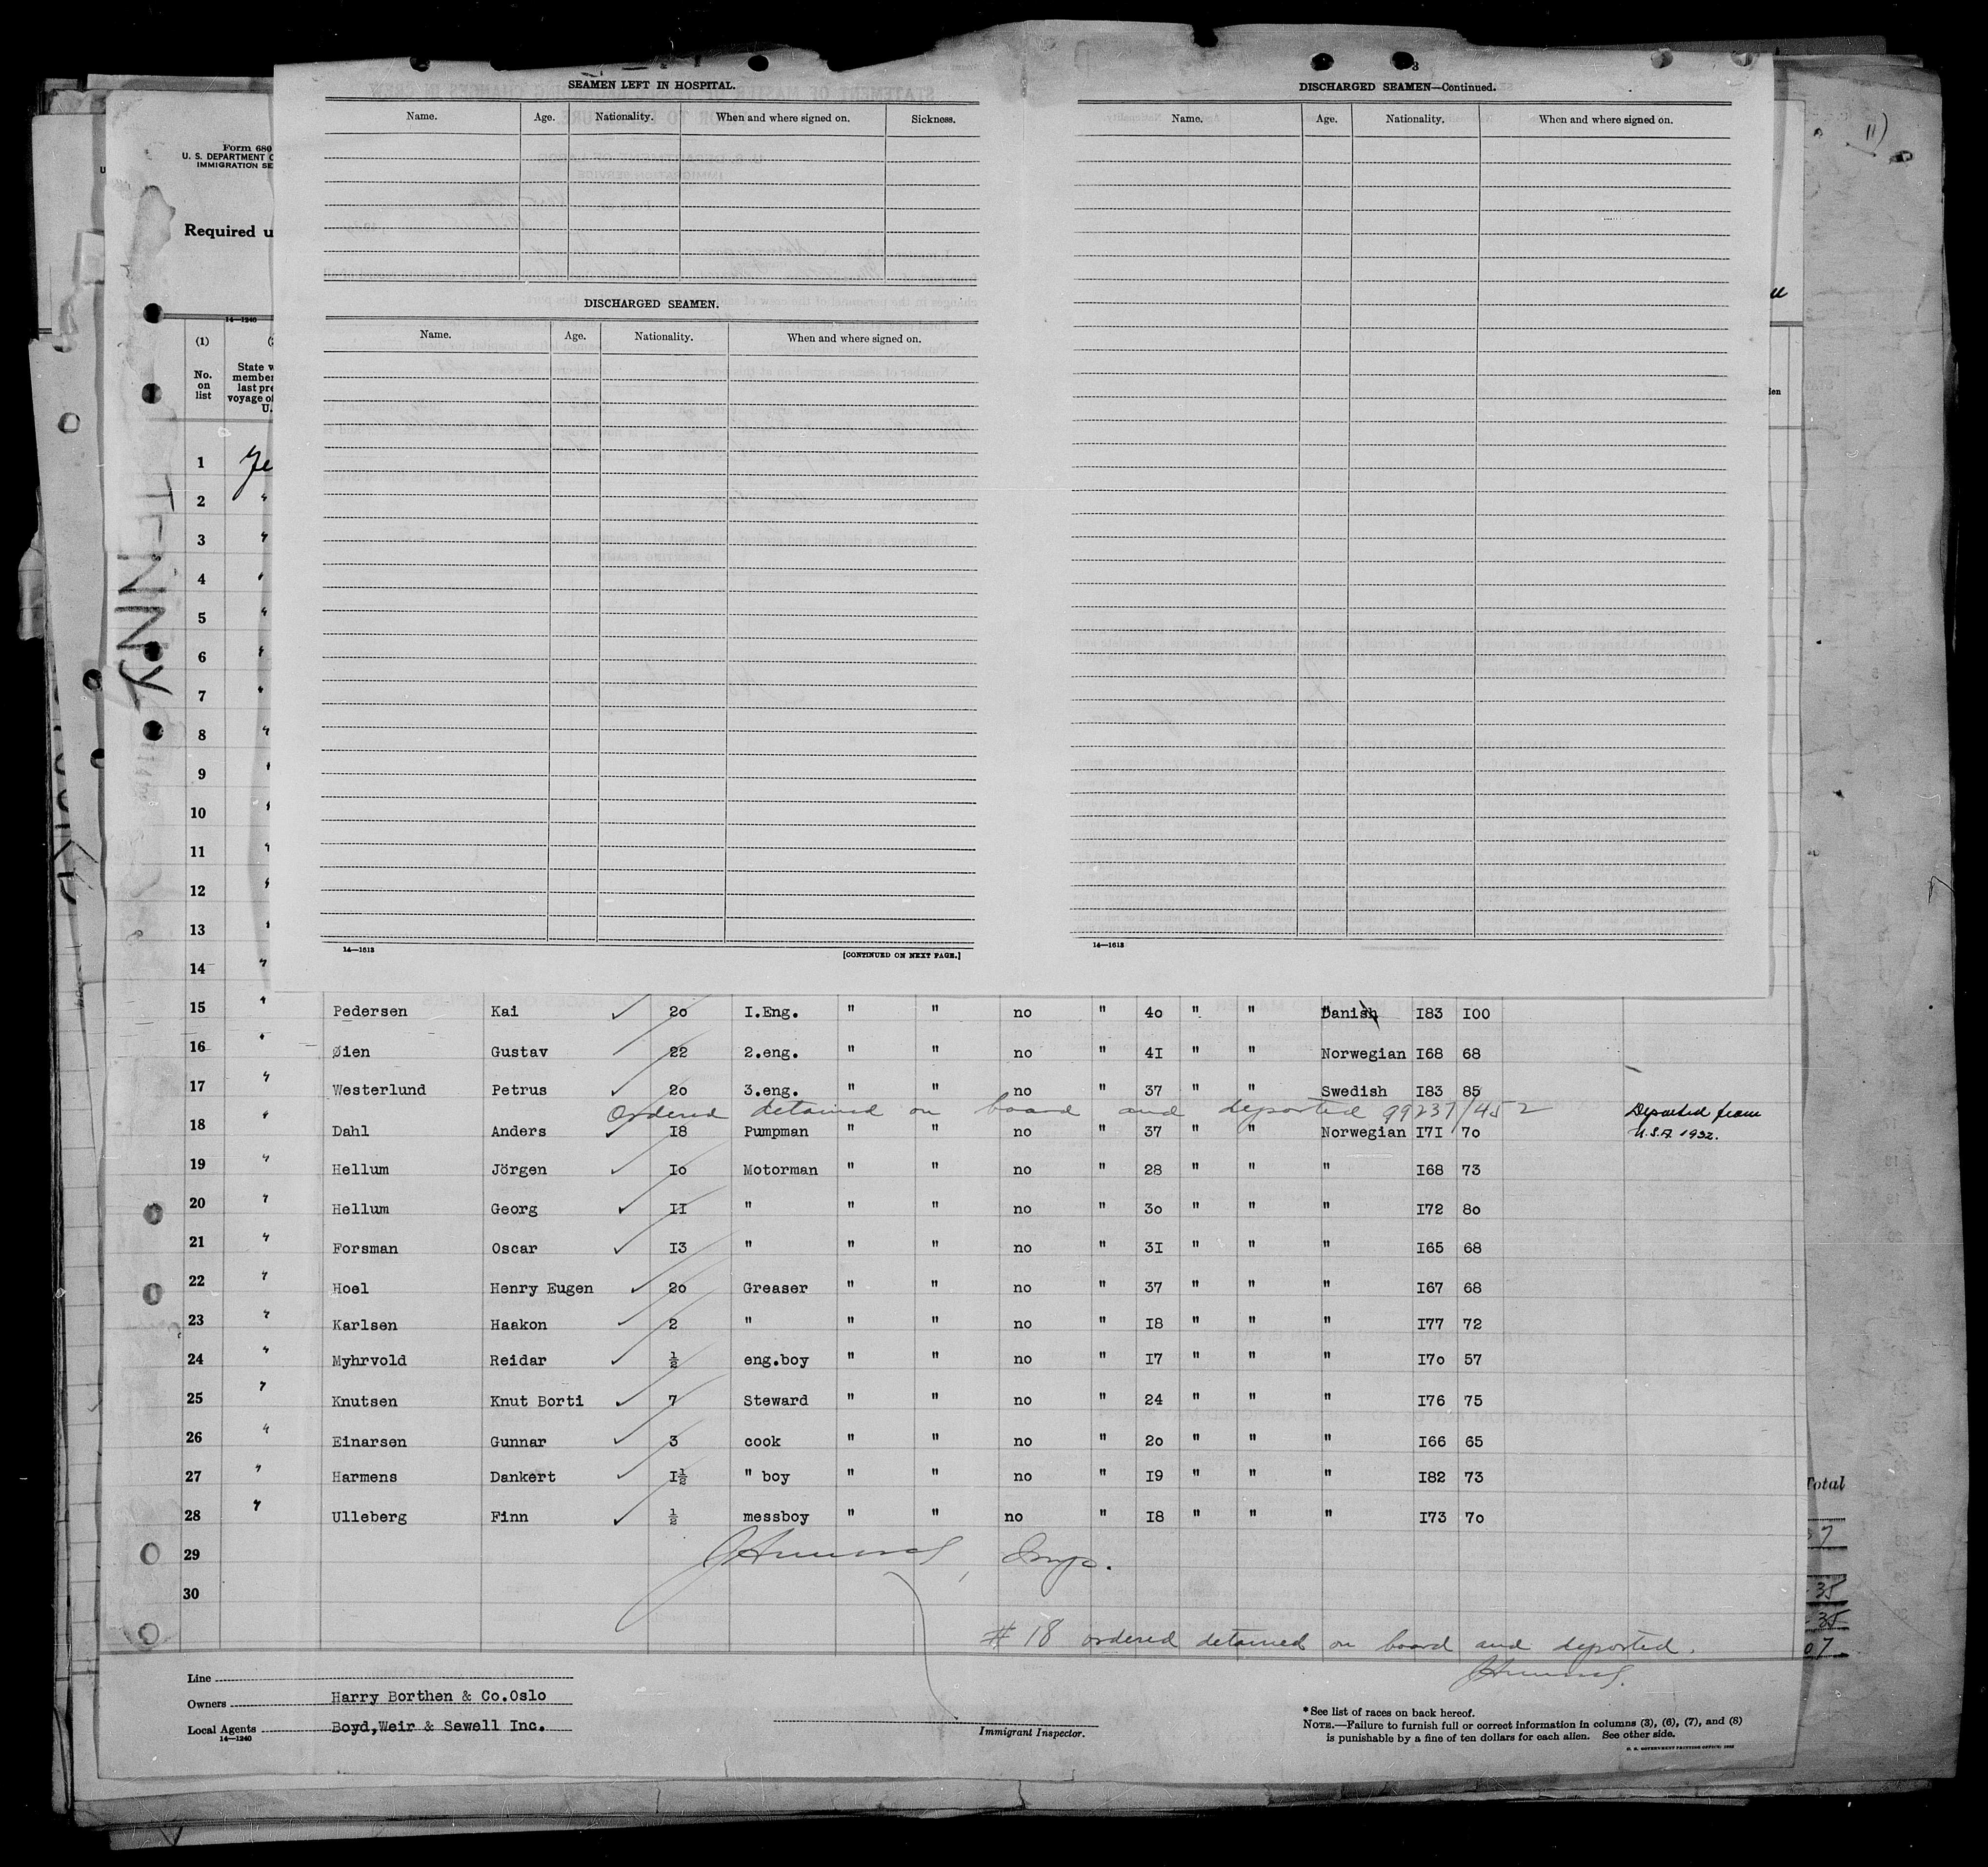 SEAMEN LEFT IN HOSPITAL.
Name. Age. Nationality. When and where signed on. Sickness.
DISCHARGED SEAMEN.
Name. Age. Nationality. When and where signed on.
14—1613
[CONTINUED ON NEXT PAGE.]
3
DISCHARGED SEAMEN—Continued.
Name. Age. Nationality. When and where signed on.
14—1613
11)
Form 680
U. S. DEPARTMENT
IMMIGRATION
Required
14—1240
(1)
No. on list
State
member
last
voyage of
U.
TINNY
1
2 "
3 "
4 "
5 "
6 "
7 "
8 "
9 "
10 "
11 "
12 "
13 "
14 "
15 " Pedersen Kai ✓ 2o I.Eng. " " no " 4o " " Danish I83 I00
16 " Øien Gustav 22 2.eng. " " no " 4I " " Norwegian I68 68
17 " Westerlund Petrus ✓ 2o 3.eng. " " no " 37 " " Swedish I83 85
Ordered detained on board and deported 99237/452
18 " Dahl Anders ✓ I8 Pumpman " " no " 37 " " Norwegian I7I 7o Deported from U.S.A. 1932.
19 " Hellum Jörgen ✓ Io Motorman " " no " 28 " " " I68 73
20 " Hellum Georg ✓ II " " " no " 3o " " " I72 8o
21 " Forsman Oscar ✓ I3 " " " no " 3I " " " I65 68
22 " Hoel Henry Eugen ✓ 2o Greaser " " no " 37 " " " I67 68
23 " Karlsen Haakon ✓ 2 " " " no " I8 " " " I77 72
24 " Myhrvold Reidar ✓ ½ eng.boy " " no " I7 " " " I7o 57
25 " Knutsen Knut Borti ✓ 7 Steward " " no " 24 " " " I76 75
26 " Einarsen Gunnar ✓ 3 cook " " no " 2o " " " I66 65
27 " Harmens Dankert ✓ I½ " boy " " no " I9 " " " I82 73
28 " Ulleberg Finn ✓ ½ messboy " " no " I8 " " " I73 7o
29 Insp.
30
# 18 ordered detained on board and deported.
Line
Owners Harry Borthen & Co.Oslo
Local Agents Boyd,Weir & Sewell Inc.
14—1240
Immigrant Inspector.
*See list of races on back hereof.
NOTE.—Failure to furnish full or correct information in columns (3), (6), (7), and (8)
is punishable by a fine of ten dollars for each alien. See other side.
Total
35
35
07